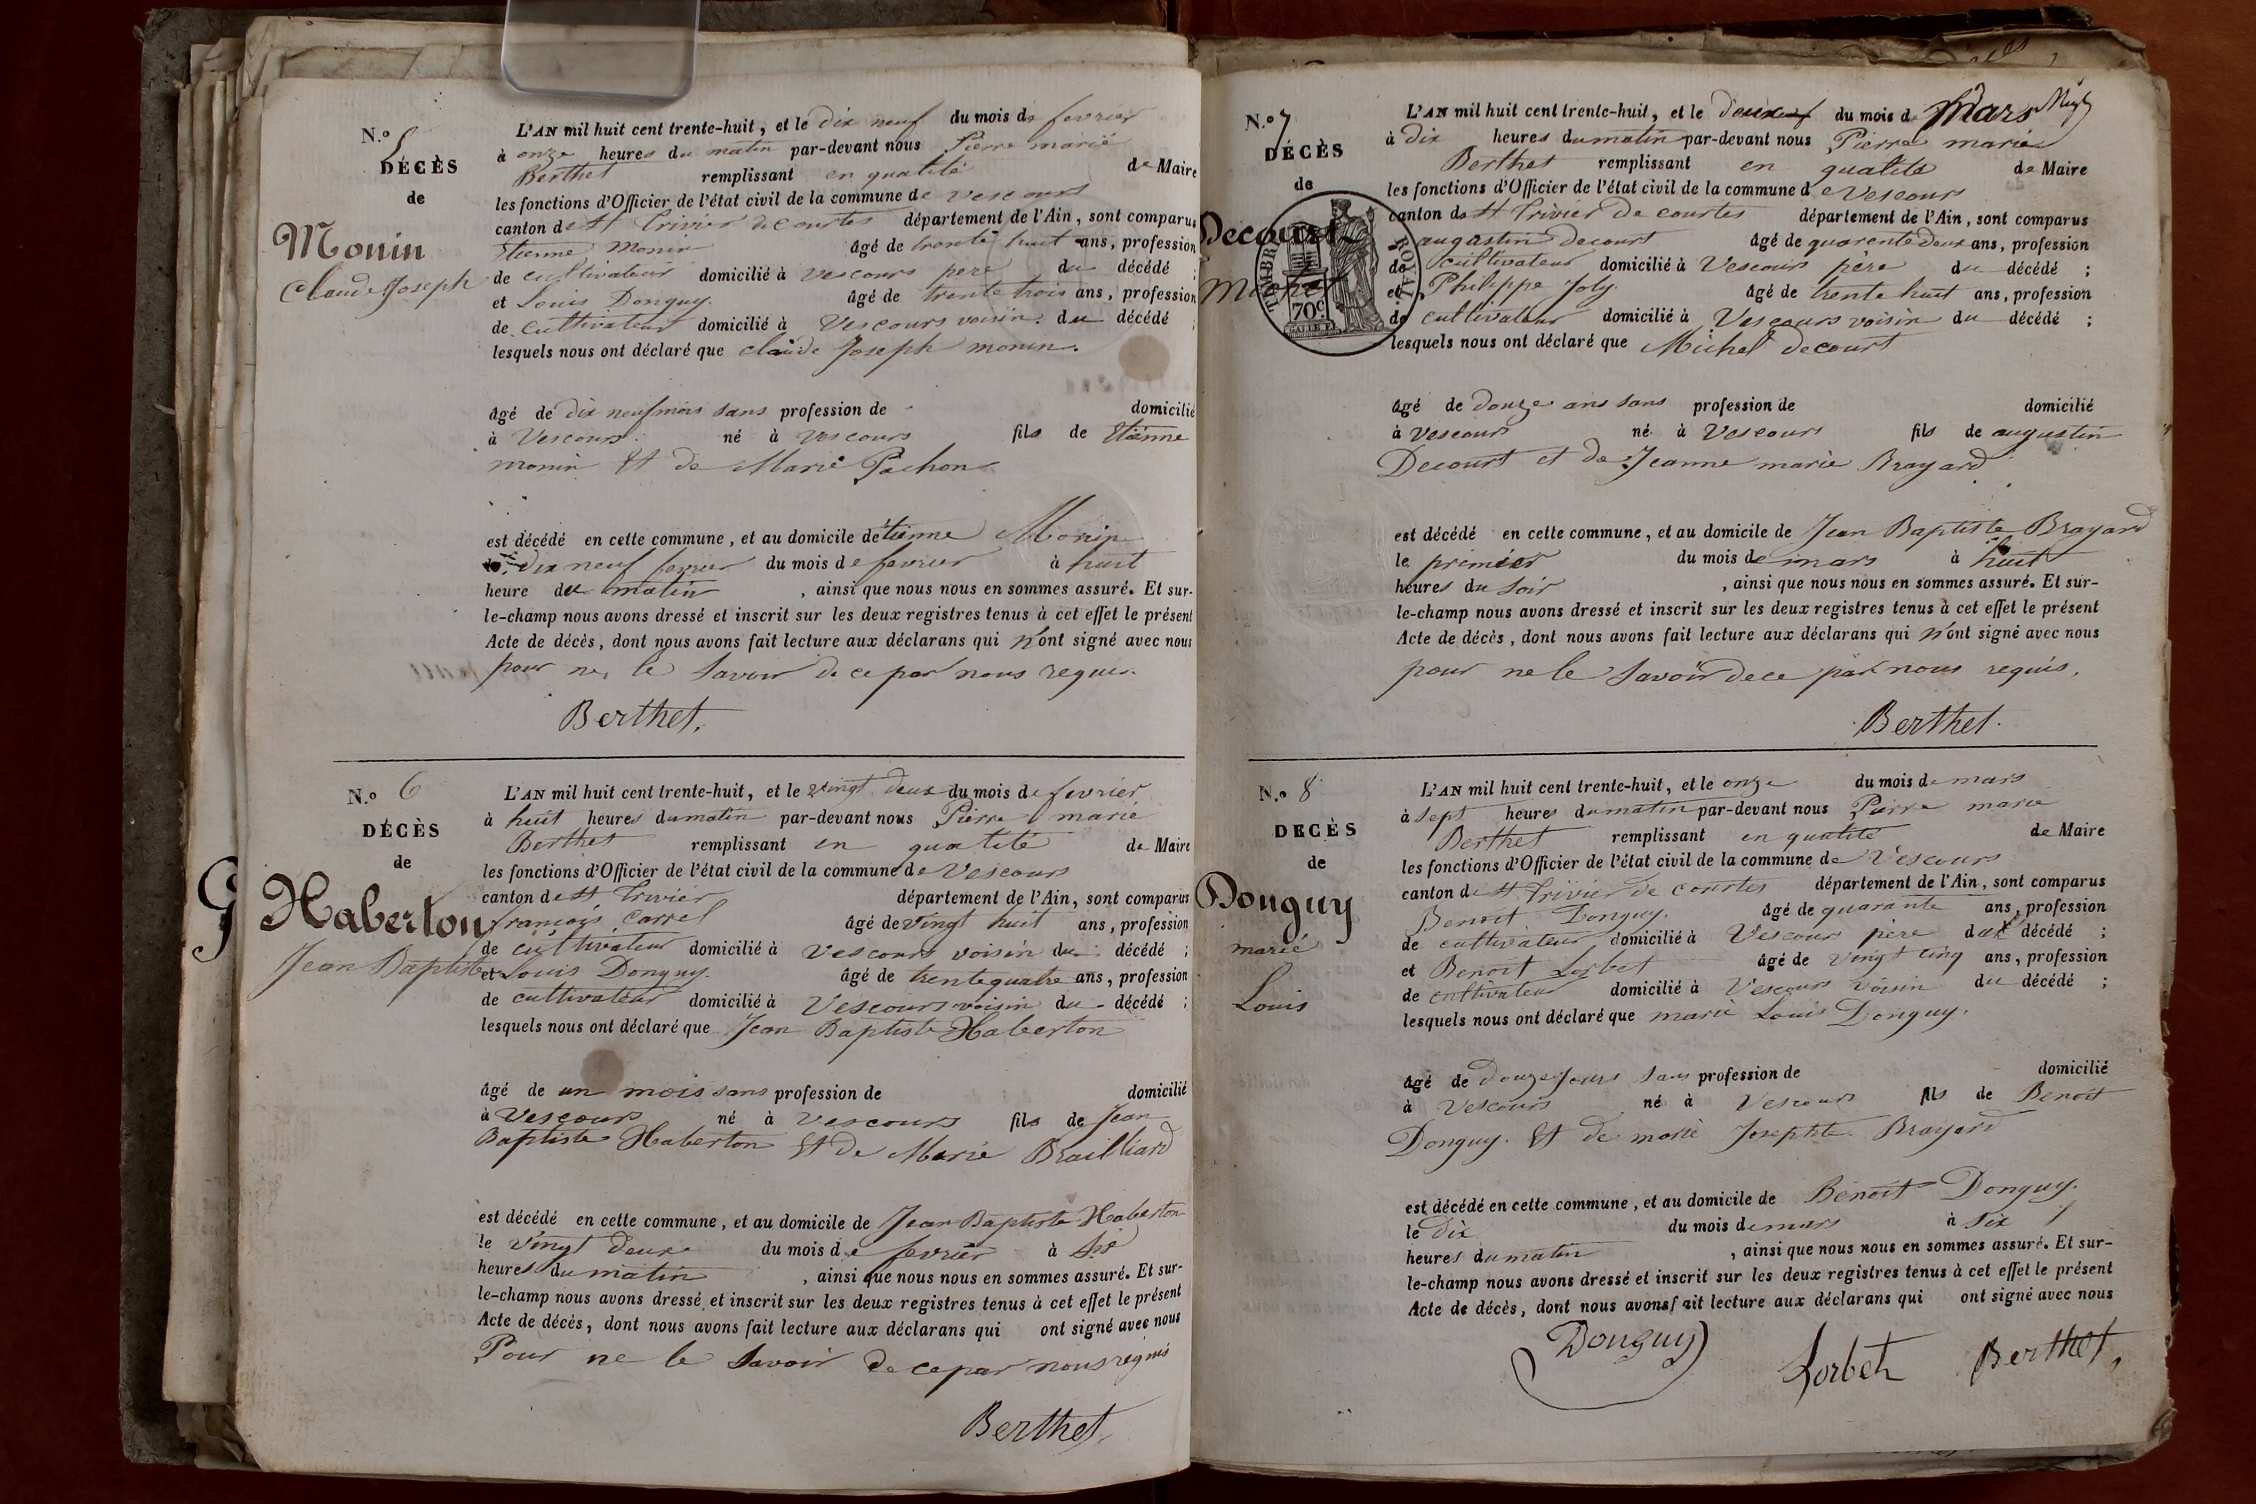 N.o 5
DÉCÈS
de
Monin
Claude Joseph
L'AN mil huit cent trente-huit, et le dix neuf du mois de fevrier
à onze heures du matin par-devant nous Pierre marie
Berthet remplissant en qualité de Maire
les fonctions d'Officier de l'état civil de la commune de vescours
canton de St Trivier de courtes département de l'Ain, sont comparus
Etienne Monin âgé de trente huit ans, profession
de cultivateur domicilié à vescours pere du décédé ;
et Louis Donguy. âgé de trente trois ans, profession
de cultivateur domicilié à Vescours voisin du décédé ;
lesquels nous ont déclaré que claude Joseph monin.
âgé de dix neuf mois sans profession de domicilié
à Vescours né à vescours fils de Etienne
monin Et de Marie Pachon
est décédé en cette commune, et au domicile de étienne Monin
le dix neuf fevrier du mois de fevrier à huit
heure du matin , ainsi que nous nous en sommes assuré. Et sur-
le-champ nous avons dressé et inscrit sur les deux registres tenus à cet effet le présent
Acte de décès, dont nous avons fait lecture aux déclarans qui n'ont signé avec nous
pour ne le savoir de ce par nous requis.
Berthet.
N.o 6
DÉCÈS
de
Haberton
Jean Baptiste
L'AN mil huit cent trente-huit, et le vingt deux du mois de fevrier
à huit heures du matin par-devant nous Pierre marie
Berthet remplissant en qualité de Maire
les fonctions d'Officier de l'état civil de la commune de Vescours
canton de St Trivier département de l'Ain, sont comparus
françois Carrel âgé de vingt huit ans, profession
de cultivateur domicilié à vescours voisin du décédé ;
et Louis Donguy. âgé de trente quatre ans, profession
de cultivateur domicilié à Vescours voisin du décédé ;
lesquels nous ont déclaré que Jean Baptiste Haberton
âgé de un mois sans profession de domicilié
à Vescours né à vescours fils de Jean
Baptiste Haberton Et de Marie Brailliard
est décédé en cette commune, et au domicile de Jean Baptiste Haberton
le vingt deux du mois de fevrier à six
heures du matin , ainsi que nous nous en sommes assuré. Et sur-
le-champ nous avons dressé et inscrit sur les deux registres tenus à cet effet le présent
Acte de décès, dont nous avons fait lecture aux déclarans qui ont signé avec nous
Pour ne le savoir de ce par nous requis
Berthet.
N.o 7
DÉCÈS
de
Decourt
Michel
TIMBRE ROYAL
70c.
L'AN mil huit cent trente-huit, et le deux du mois de Mars
à dix heures du matin par-devant nous Pierre marie
Berthet remplissant en qualité de Maire
les fonctions d'Officier de l'état civil de la commune de Vescours
canton de St Trivier de courtes département de l'Ain, sont comparus
augustin decourt âgé de quarente deux ans, profession
de cultivateur domicilié à Vescours père du décédé ;
et Philippe Joly. âgé de trente huit ans, profession
de cultivateur domicilié à Vescours voisin du décédé ;
lesquels nous ont déclaré que Michel decourt
âgé de douze ans sans profession de domicilié
à vescours né à Vescours fils de augustin
Decourt et de Jeanne marie Brayard
est décédé en cette commune, et au domicile de Jean Baptiste Brayard
le premier du mois de mars à huit
heures du soir , ainsi que nous nous en sommes assuré. Et sur-
le-champ nous avons dressé et inscrit sur les deux registres tenus à cet effet le présent
Acte de décès, dont nous avons fait lecture aux déclarans qui n'ont signé avec nous
pour ne le savoir de ce par nous requis.
Berthet.
N.o 8
DECÈS
de
Donguy
marie
Louis
L'AN mil huit cent trente-huit, et le onze du mois de mars
à sept heures du matin par-devant nous Pierre marie
Berthet remplissant en qualité de Maire
les fonctions d'Officier de l'état civil de la commune de Vescours
canton de St Trivier de courtes département de l'Ain, sont comparus
Benoit Donguy. âgé de quarante ans, profession
de cultivateur domicilié à Vescour père du décédé ;
et Benoit Lorbet âgé de vingt cinq ans, profession
de cultivateur domicilié à Vescours voisin du décédé ;
lesquels nous ont déclaré que marie Louis Donguy.
âgé de douze jours sans profession de domicilié
à Vescours né à Vescours fils de Benoit
Donguy. Et de marie Josephte Brayard
est décédé en cette commune, et au domicile de Benoit Donguy.
le dix du mois de mars à six
heures du matin , ainsi que nous nous en sommes assuré. Et sur-
le-champ nous avons dressé et inscrit sur les deux registres tenus à cet effet le présent
Acte de décès, dont nous avons fait lecture aux déclarans qui ont signé avec nous
Donguy Lorbet Berthet.